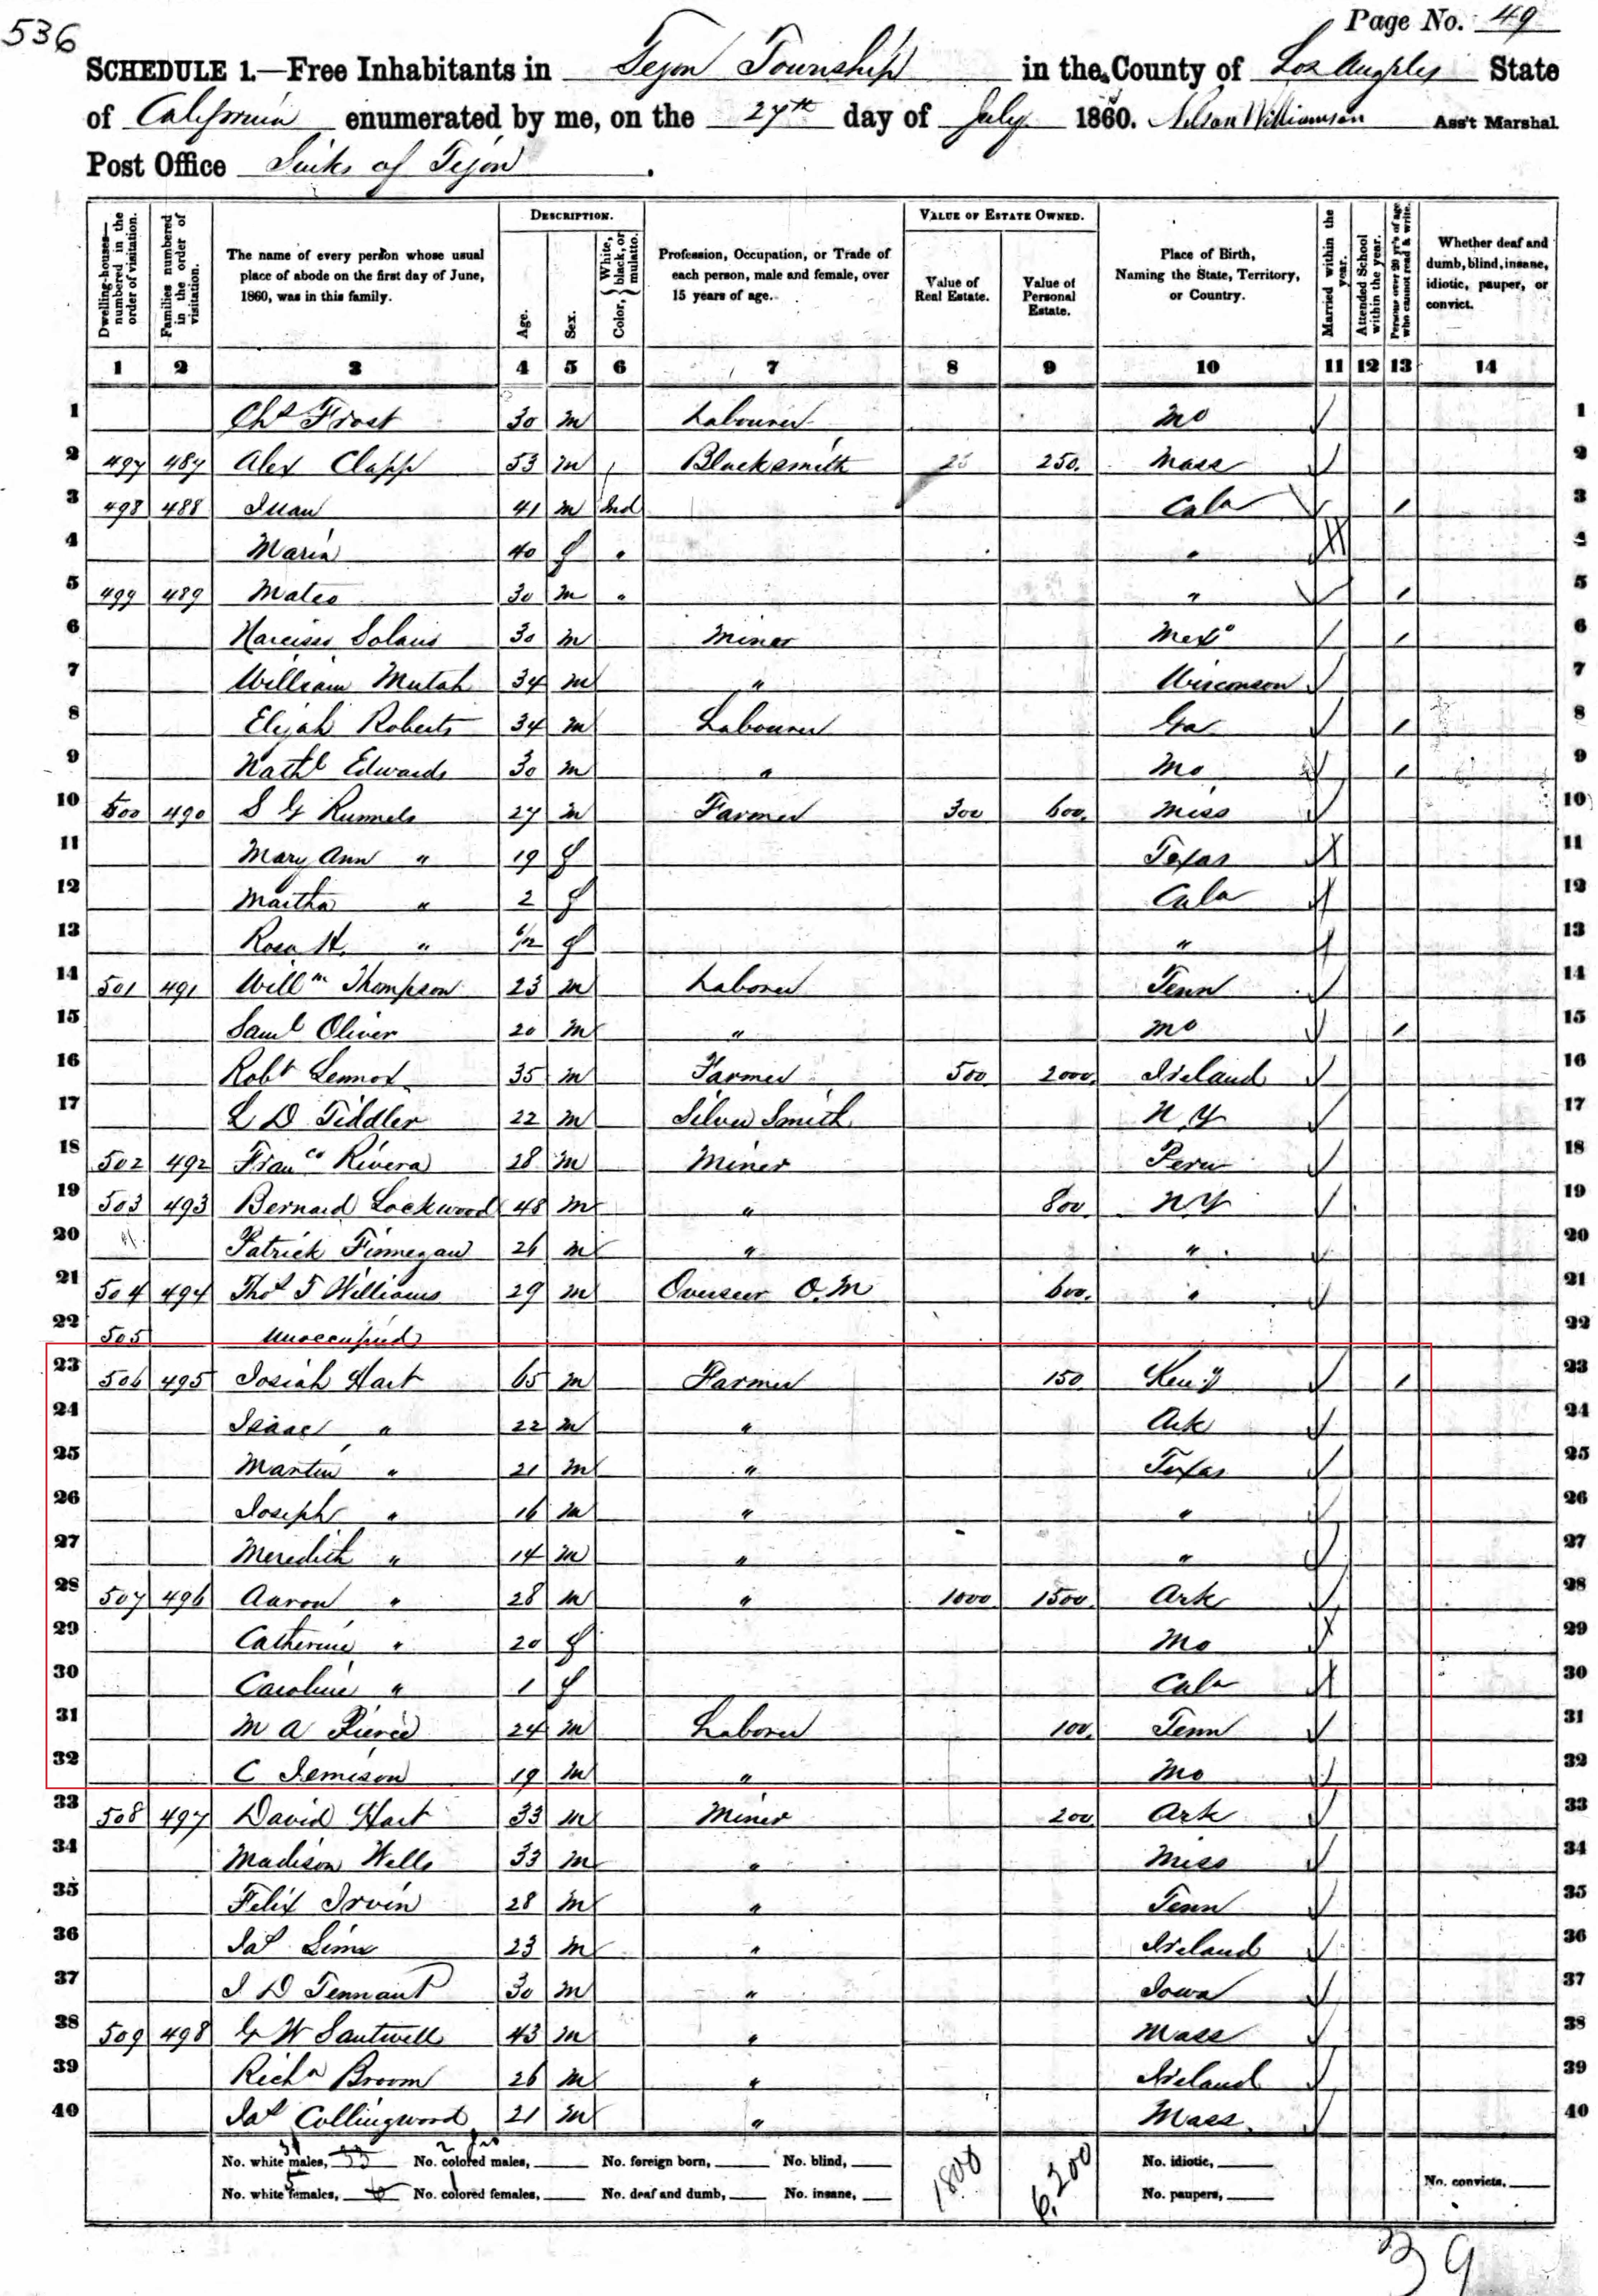 536
Page No. 49
SCHEDULE 1.—Free Inhabitants in Tejon Township in the County of Los Angeles State
of California enumerated by me, on the 27th day of July 1860. Nelson Williamson Ass't Marshal
Post Office Sinks of Tejon.
DESCRIPTION. VALUE OF ESTATE OWNED.
Dwelling-houses—numbered in the order of visitation. Families numbered in the order of visitation. The name of every person whose usual place of abode on the first day of June, 1860, was in this family. Age. Sex. Color, White, black, or mulatto. Profession, Occupation, or Trade of each person, male and female, over 15 years of age. Value of Real Estate. Value of Personal Estate. Place of Birth, Naming the State, Territory, or Country. Married within the year. Attended School within the year. Persons over 20 yr's of age who cannot read & write. Whether deaf and dumb, blind, insane, idiotic, pauper, or convict.
1 2 3 4 5 6 7 8 9 10 11 12 13 14
1 Chs Frost 30 m Labourer Mo 1
2 497 487 Alex Clapp 53 m Blacksmith 250. Mass 2
3 498 488 Juan 41 m Ind Cala / 3
4 Maria 40 f " " 4
5 499 489 Mateo 30 m " " / 5
6 Narcisso Solaus 30 m Miner Mexo / 6
7 William Mutah 34 m " Wisconson 7
8 Elijah Roberts 34 m Labourer Ga / 8
9 Nathl Edwards 30 m " Mo / 9
10 500 490 S G Runnels 27 m Farmer 300 600. Miss 10
11 Mary Ann " 19 f Texas 11
12 Martha " 2 f Cala 12
13 Rosa H. " 6/12 f " 13
14 501 491 Willm Thompson 23 m Laborer Tenn 14
15 Saml Oliver 20 m " Mo / 15
16 Robt Lennox 35 m Farmer 500. 2000. Ireland 16
17 L D Fiddler 22 m Silver Smith N Y 17
18 502 492 Franco Rivera 28 m Miner Peru 18
19 503 493 Bernard Lockwood 48 m " 800. N Y 19
20 Patrick Finnegan 26 m " " 20
21 504 494 Thos T Williams 29 m Overseer O. M 600. " 21
22 505 Unoccupied 22
23 506 495 Josiah Hart 65 m Farmer 150 Keny / 23
24 Isaac " 22 m " Ark 24
25 Martin " 21 m " Texas 25
26 Joseph " 16 m " " 26
27 Meredith " 14 m " " 27
28 507 496 Aaron " 28 m " 1000. 1500. Ark 28
29 Catherine " 20 f Mo 29
30 Caroline " 1 f Cala 30
31 M A Pierce 24 m Laborer 100. Tenn 31
32 C Jemison 19 m " Mo 32
33 508 497 David Hart 33 m Miner 200. Ark 33
34 Madison Wells 33 m " Miss 34
35 Felix Irvin 28 m " Tenn 35
36 Jas Sims 23 m " Ireland 36
37 J D Tennant 30 m " Iowa 37
38 509 498 G W Sautwell 43 m " Mass 38
39 Richd Broom 26 m " Ireland 39
40 Jas Collingwood 21 m " Mass 40
No. white males, 33 31 No. colored males, 2 No. foreign born, No. blind, 1800 6,200 No. idiotic,
No. white females, 6 5 No. colored females, 1 No. deaf and dumb, No. insane, No. paupers, No. convicts,
39